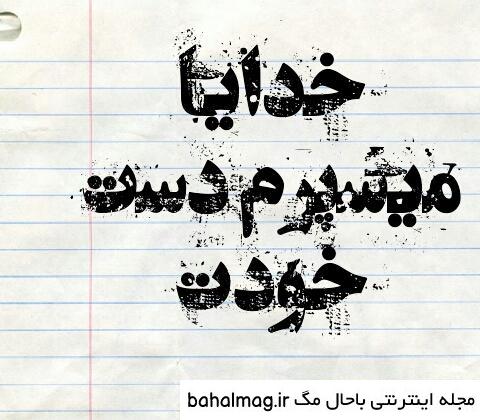 خدایا
میسپرم دست
خودت
مجله اینترنتی باحال مگ bahalmag.ir